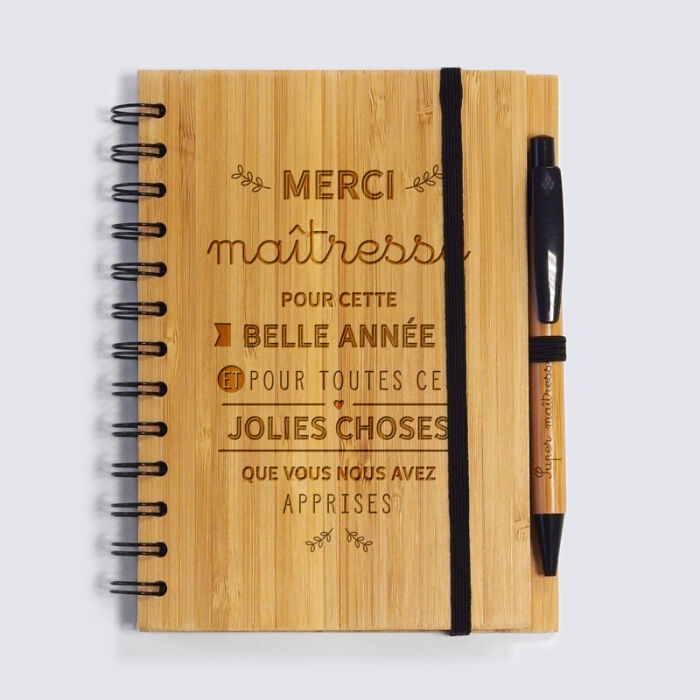 MERCI
maîtresse
POUR CETTE
BELLE ANNÉE
ET POUR TOUTES CES
JOLIES CHOSES
QUE VOUS NOUS AVEZ
APPRISES
Super maîtresse